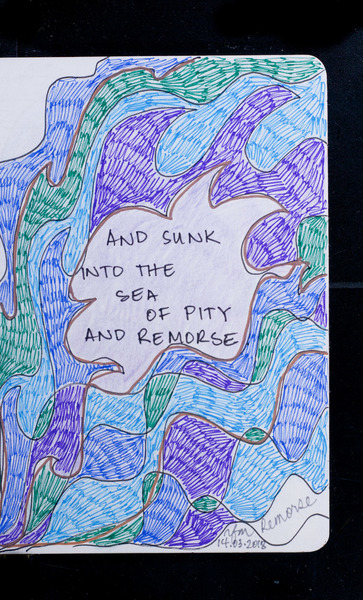 AND SUNK
INTO THE
SEA
OF PITY
AND REMORSE
Remorse
14.03.2018